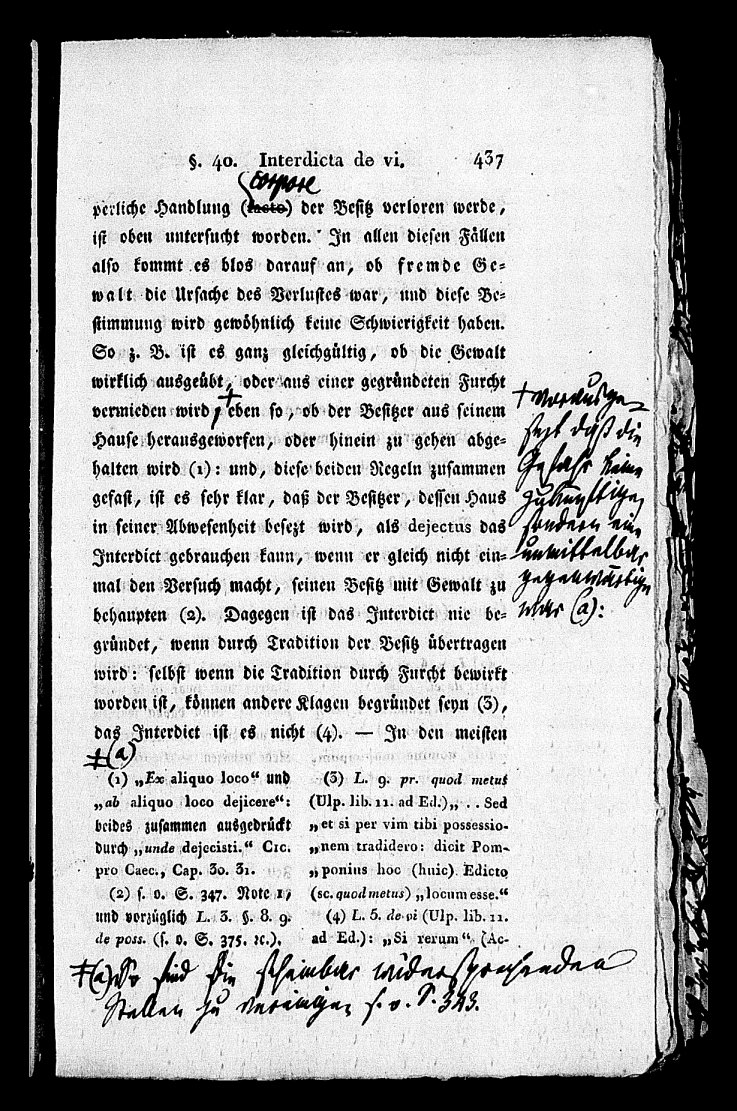 §. 40. Interdicta de vi. 437
corpore
perliche Handlung (facto) der Besitz verloren werde,
ist oben untersucht worden. In allen diesen Fällen
also kommt es blos darauf an, ob fremde Ge-
walt die Ursache des Verlustes war, und diese Be-
stimmung wird gewöhnlich keine Schwierigkeit haben.
So z. B. ist es ganz gleichgültig, ob die Gewalt
wirklich ausgeübt, oder aus einer gegründeten Furcht
vermieden wird +, eben so, ob der Besitzer aus seinem
Hause herausgeworfen, oder hinein zu gehen abge-
halten wird (1): und, diese beiden Regeln zusammen
gefast, ist es sehr klar, daß der Besitzer, dessen Haus
in seiner Abwesenheit besezt wird, als dejectus das
Interdict gebrauchen kann, wenn er gleich nicht ein-
mal den Versuch macht, seinen Besitz mit Gewalt zu
behaupten (2). Dagegen ist das Interdict nie be-
gründet, wenn durch Tradition der Besitz übertragen
wird: selbst wenn die Tradition durch Furcht bewirkt
worden ist, können andere Klagen begründet seyn (3),
das Interdict ist es nicht (4). — In den meisten
+ vorausge-
sezt daß die
Gefahr keine
zukünftige,
sondern eine
unmittelbar
gegenwärtige
war (a):
‡ (a)
(1) „Ex aliquo loco“ und
„ab aliquo loco dejicere“:
beides zusammen ausgedrückt
durch „unde dejecisti.“ Cic.
pro Caec., Cap. 30. 31.
(2) s. o. S. 347. Note 1,
und vorzüglich L. 3. §. 8. 9.
de poss. (s. o. S. 375. ꝛc.).
(3) L. 9. pr. quod metus
(Ulp. lib. 11. ad Ed.) „ . . Sed
„et si per vim tibi possessio-
„nem tradidero: dicit Pom-
„ponius hoc (huic) Edicto
(sc. quod metus) „locum esse.“
(4) L. 5. de vi (Ulp. lib. 11.
ad Ed.): „Si rerum“ (Ac-
‡ (a) So sind die scheinbar widersprechenden
Stellen zu vereinigen s. v. S. 343.